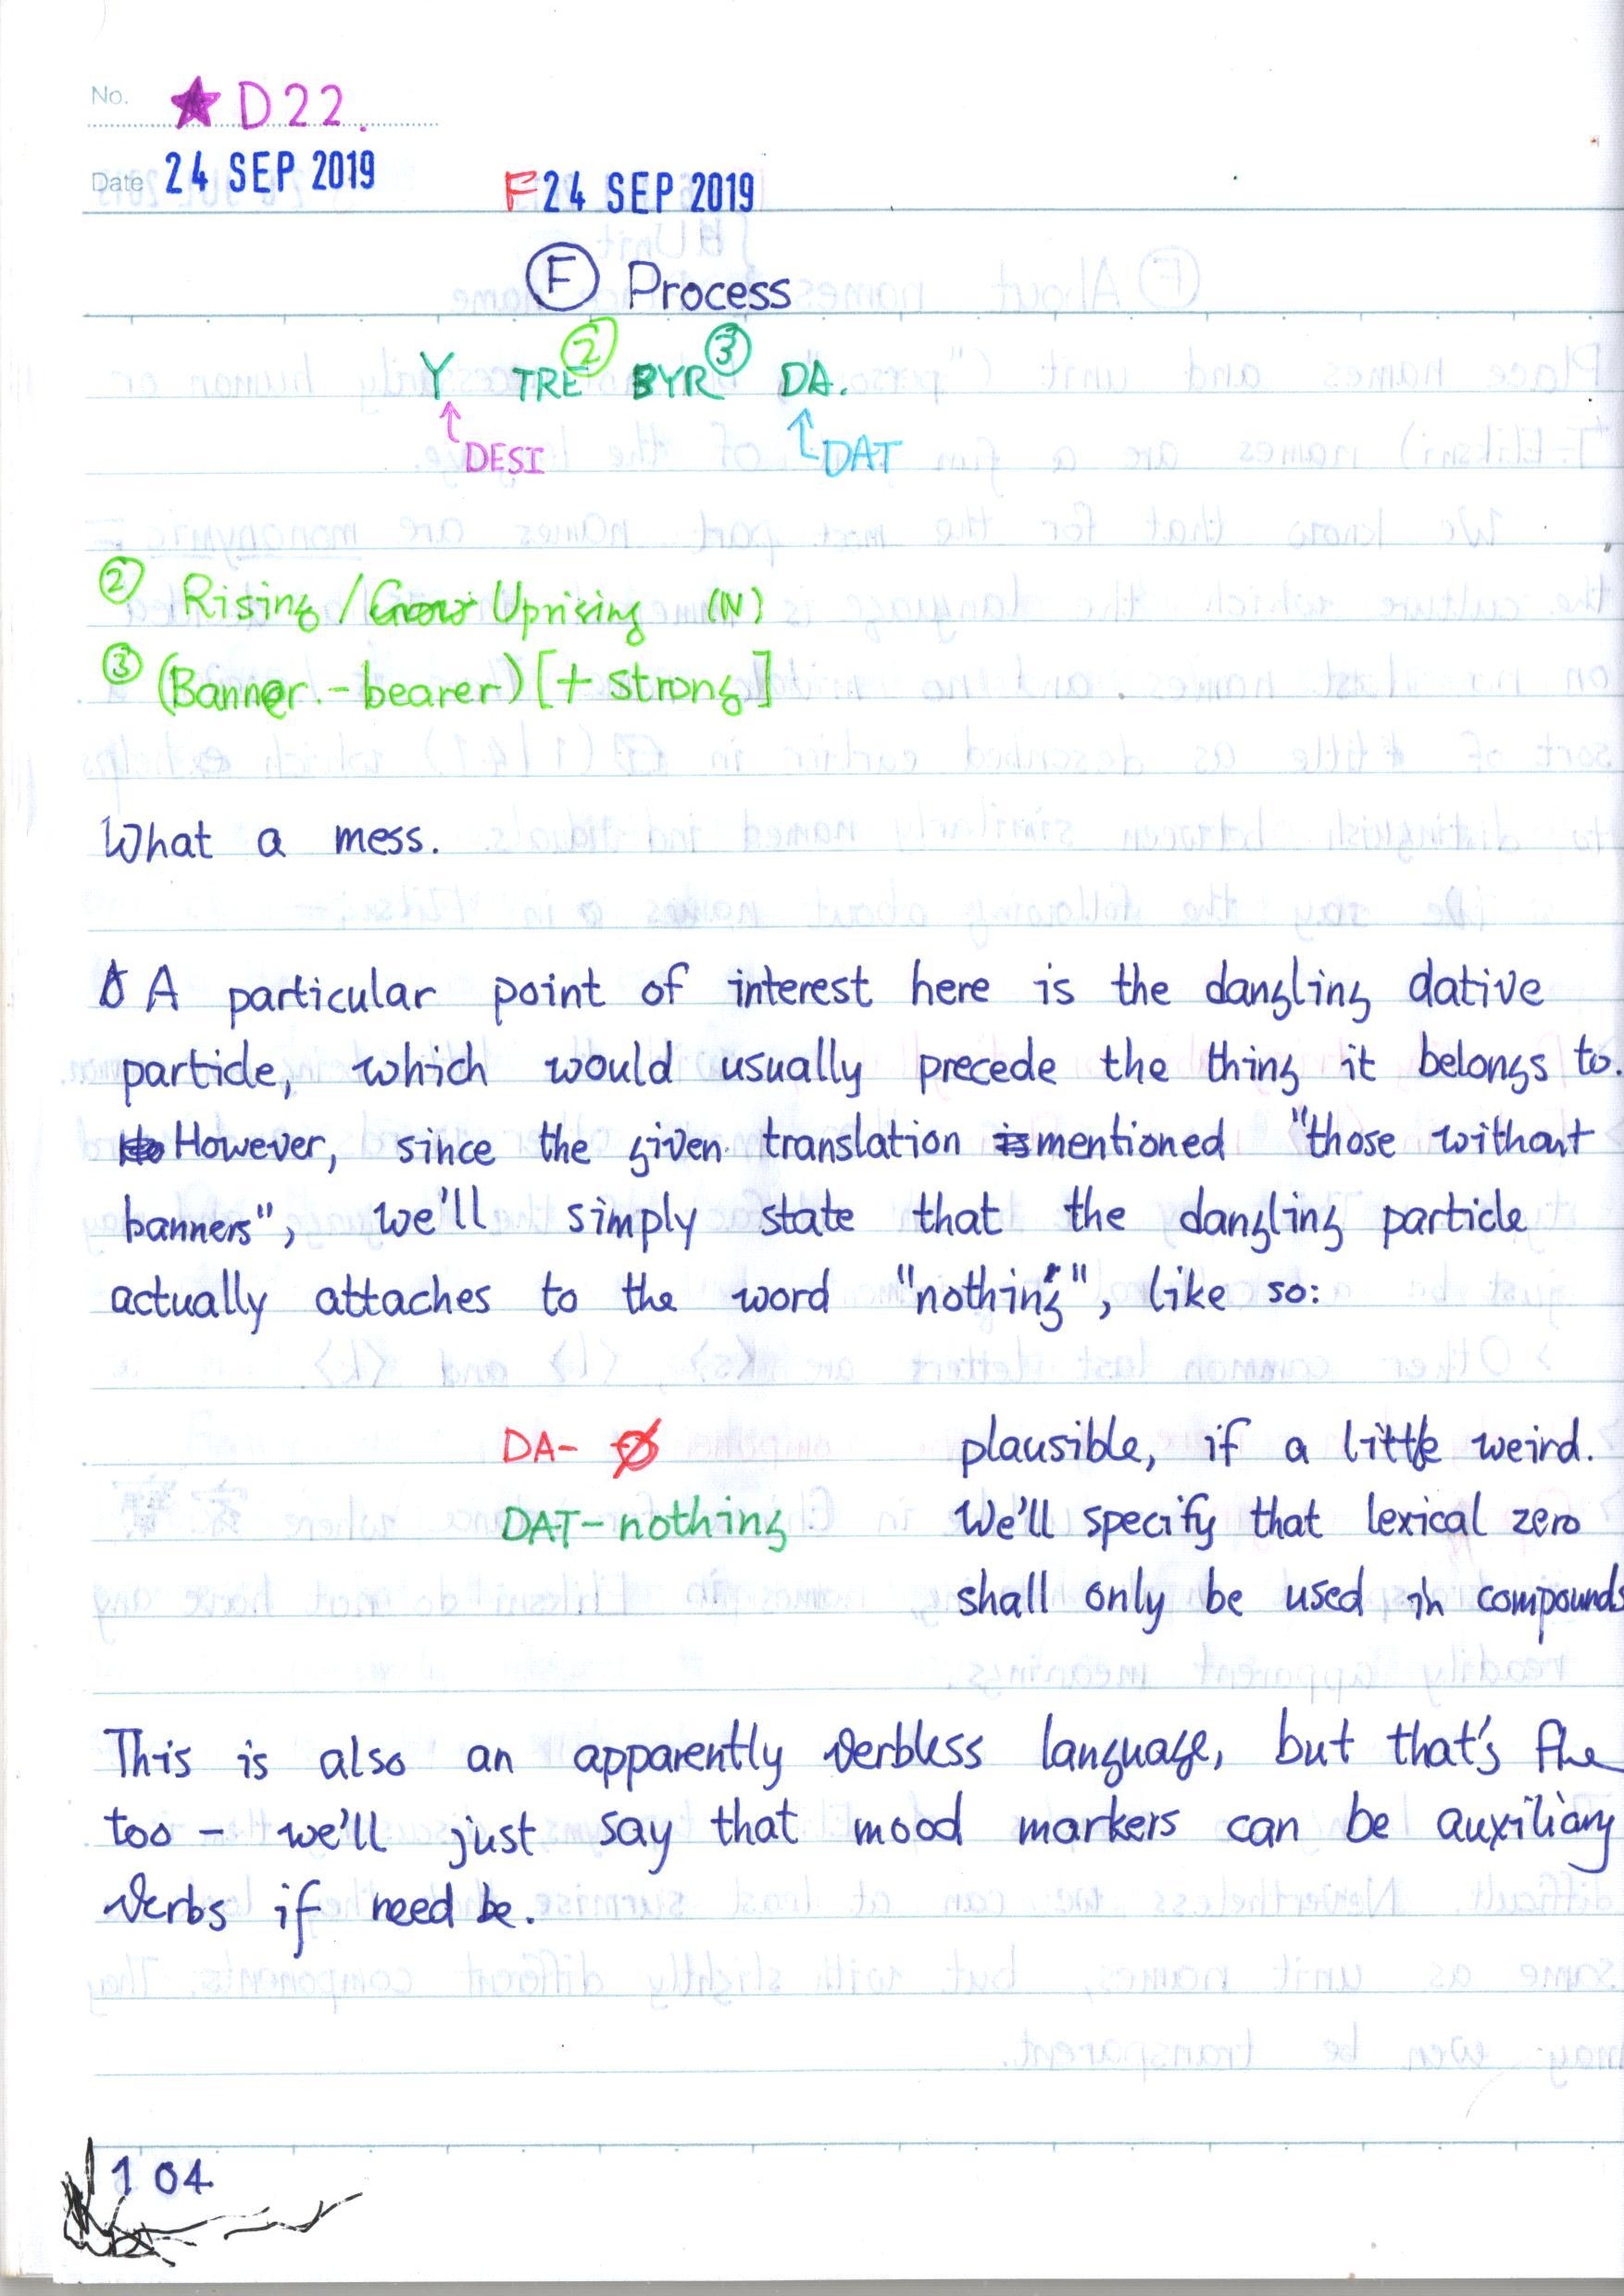 No. ★ D22.
Date 24 SEP 2019 F 24 SEP 2019
Ⓕ Process
Y TRE② BYR③ DA.
↑DESI ↑DAT
② Rising / Uprising (N)
③ (Banner.-bearer) [+ strong]
What a mess.
A particular point of interest here is the dangling dative
particle, which would usually precede the thing it belongs to.
However, since the given translation mentioned "those without
banners", we'll simply state that the dangling particle
actually attaches to the word "nothing", like so:
DA- Ø plausible, if a little weird.
DAT-nothing We'll specify that lexical zero
shall only be used in compounds
This is also an apparently verbless language, but that's fine
too – we'll just say that mood markers can be auxiliary
verbs if need be.
104